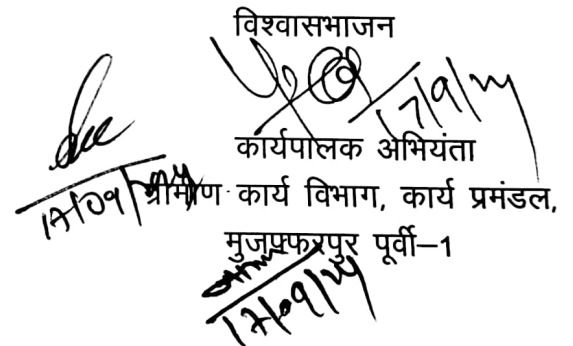 विश्वासभाजन
17/9/24
कार्यपालक अभियंता
17/09/24 ग्रामीण कार्य विभाग, कार्य प्रमंडल,
मुजफ्फरपुर पूर्वी–1
17/09/24